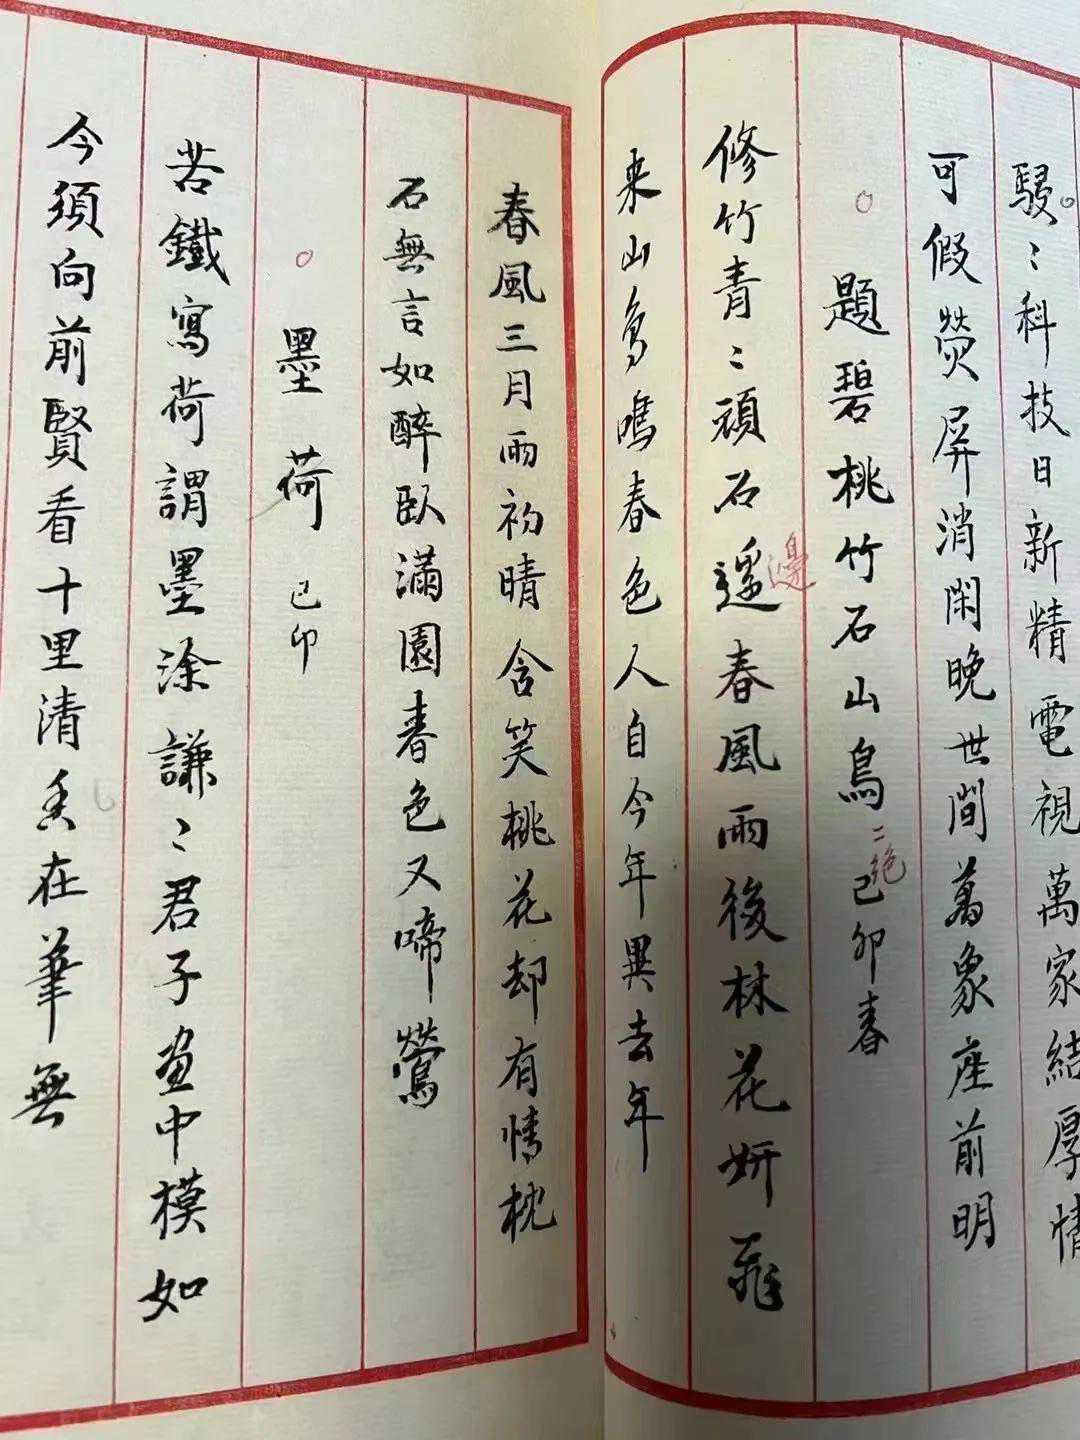 駸〻科技日新精電視萬家結厚情
可假熒屏消閑晚世間萬象座前明
題碧桃竹石山鳥二絕己卯春
修竹青〻頑石邊遥春風雨後林花妍飛
来山鳥鳴春色人自今年異去年
春風三月雨初晴含笑桃花却有情枕
石無言如醉臥滿園春色又啼鶯
墨荷己卯
苦鐵寫荷謂墨塗謙〻君子画中模如
今須向前賢看十里清香在筆無